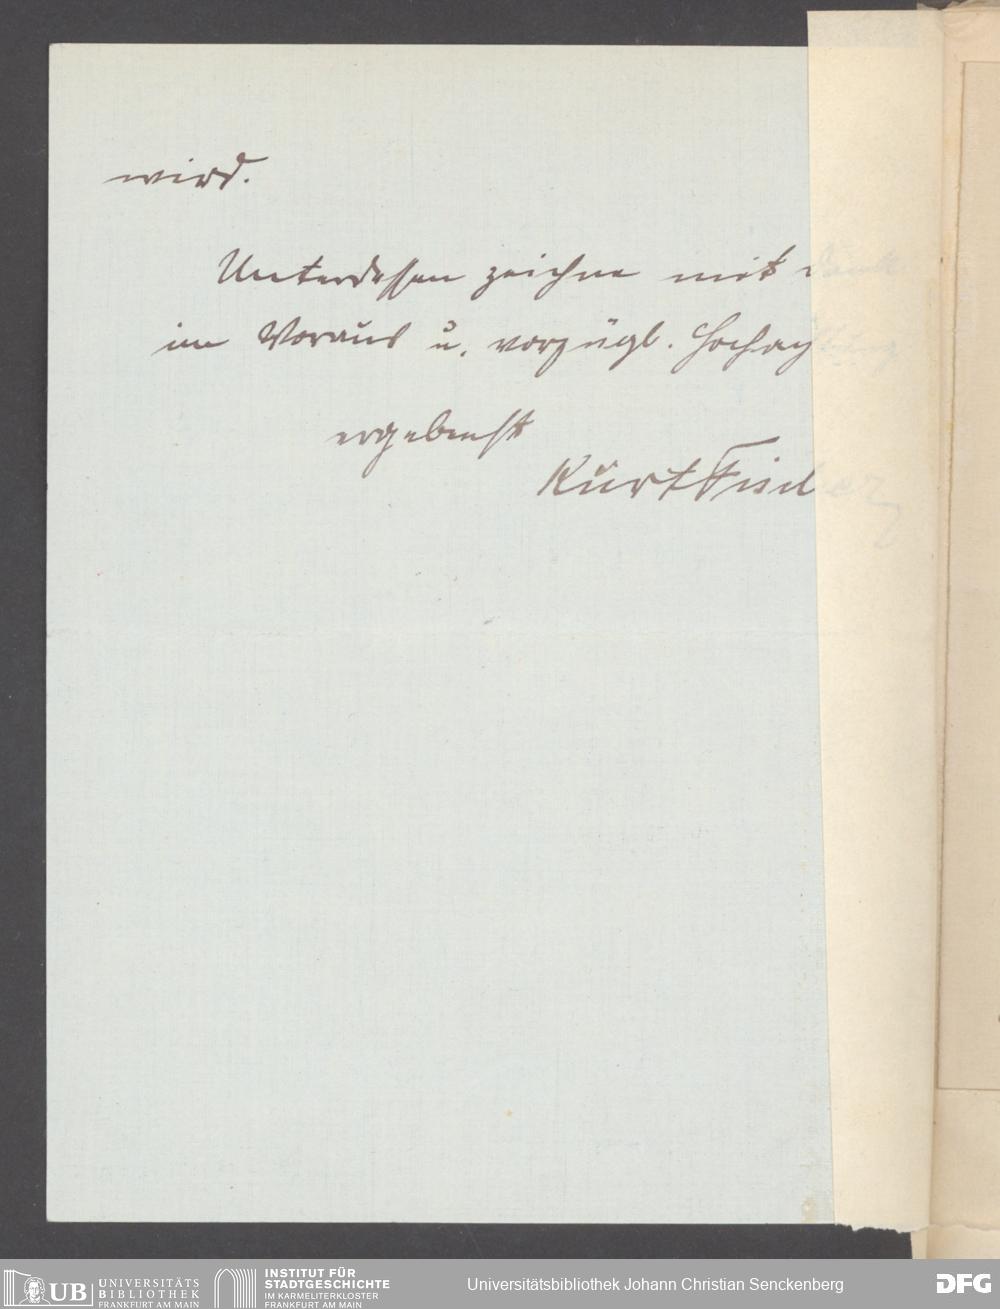 wird.
Unterdessen zeichne mit Dank
im Voraus u. vorzügl. Hochachtung
ergebenst
Kurt Fischer
UB UNIVERSITÄTS
BIBLIOTHEK
FRANKFURT AM MAIN
INSTITUT FÜR
STADTGESCHICHTE
IM KARMELITERKLOSTER
FRANKFURT AM MAIN
Universitätsbibliothek Johann Christian Senckenberg
DFG